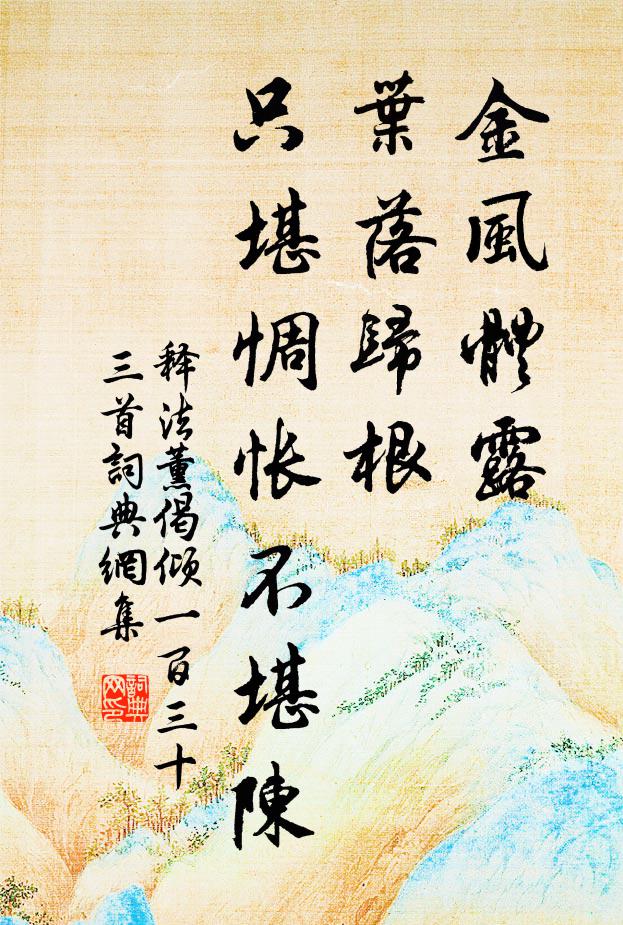 金風體露
葉落歸根
只堪惆怅不堪陳
释法薰偈傾一百三十
三首詞典網集
詞典网印